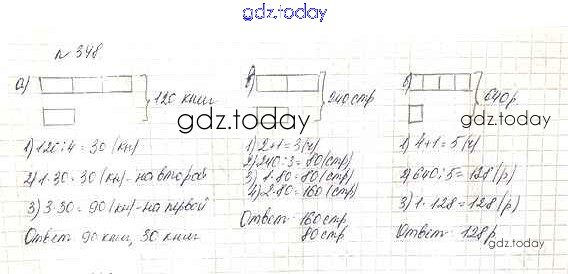 gdz.today
№ 348
а) } 120 книг
1) 120:4=30 (кн)
2) 1·30=30 (кн)- на второй
3) 3·30=90 (кн)- на первой
Ответ 90 книг, 30 книг
б) } 240 стр
1) 2+1=3(ч)
2) 240:3=80(стр)
3) 1·80=80(стр)
4) 2·80=160(стр)
Ответ 160 стр
80 стр
в) } 640р
1) 4+1=5(ч)
2) 640:5=128(р)
3) 1·128=128(р)
Ответ: 128р
gdz.today
gdz.today
gdz.today